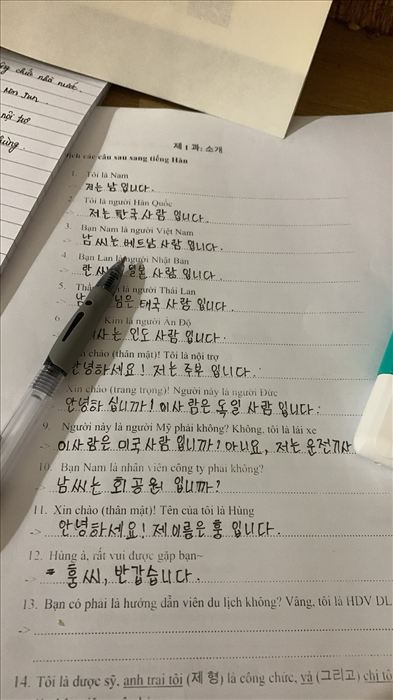 chữa nhà nước.
Man Jun.
nội trợ
Hùng.
제 1 과: 소개
dịch các câu sau sang tiếng Hàn
1. Tôi là Nam
저는 남 입니다.
2. Tôi là người Hàn Quốc
-> 저는 한국 사람 입니다.
3. Bạn Nam là người Việt Nam
-> 남 씨는 베트남 사람 입니다.
4. Bạn Lan là người Nhật Bản
-> 란 씨 일본 사람 입니다.
5. là người Thái Lan
-> 남 님은 태국 사람 입니다.
6 Kim là người Ấn Độ
사는 인도 사람 입니다.
chào (thân mật)! Tôi là nội trợ
안녕하세요! 저는 주부 입니다.
Xin chào (trang trọng)! Người này là người Đức
안녕하 십니까! 이사람은 독일 사람 입니다.
9. Người này là người Mỹ phải không? Không, tôi là lái xe
-> 이사람은 미국사람 입니까? 아니요, 저는 운전기사
10. Bạn Nam là nhân viên công ty phải không?
-> 남씨는 회공원 입니까?
11. Xin chào (thân mật)! Tên của tôi là Hùng
-> 안녕하세요! 제 이름은 훙 입니다.
12. Hùng à, rất vui được gặp bạn~
훙씨, 반갑습니다.
13. Bạn có phải là hướng dẫn viên du lịch không? Vâng, tôi là HDV DL
->
14. Tôi là dược sỹ, anh trai tôi (제 형) là công chức, và (그리고) chị tô